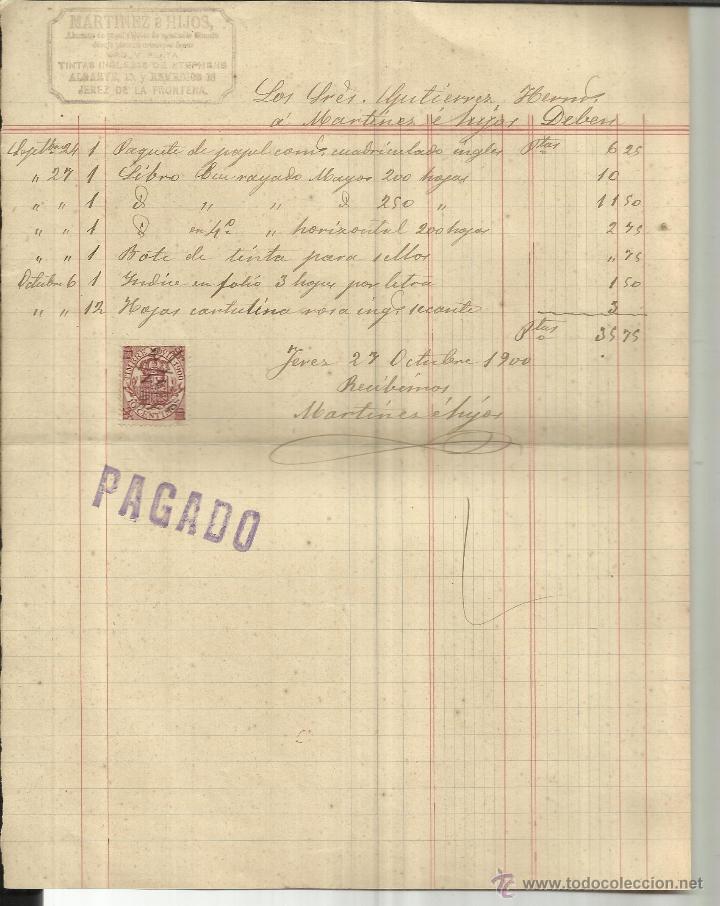 MARTINEZ é HIJOS,
TINTAS INGLESAS DE STEPHENS
ALGARVE, 13, y REMEDIOS 16
JEREZ DE LA FRONTERA.
Los Sres. Gutierrez Hermos.
á Martinez é hijos Deben
Septbre 24 1 Paquete de papel coml cuadriculado ingles Ptas 6 25
" 27 1 Libro rayado Mayor 200 hojas 10
" " 1 D " " D 250 " 11 50
" " 1 D en 4º " horizontal 200 hojas 2 75
" " 1 Bote de tinta para sellos " 75
Octubre 6 1 Indice en folio 3 hojas por letra 1 50
" " 12 Hojas cartulina rosa ingª secante 3
Ptas 35 75
Jerez 27 Octubre 1900
Recibimos
Martinez é hijos
TIMBRE MOVIL 1900
10 CENTIMOS
PAGADO
© www.todocoleccion.net